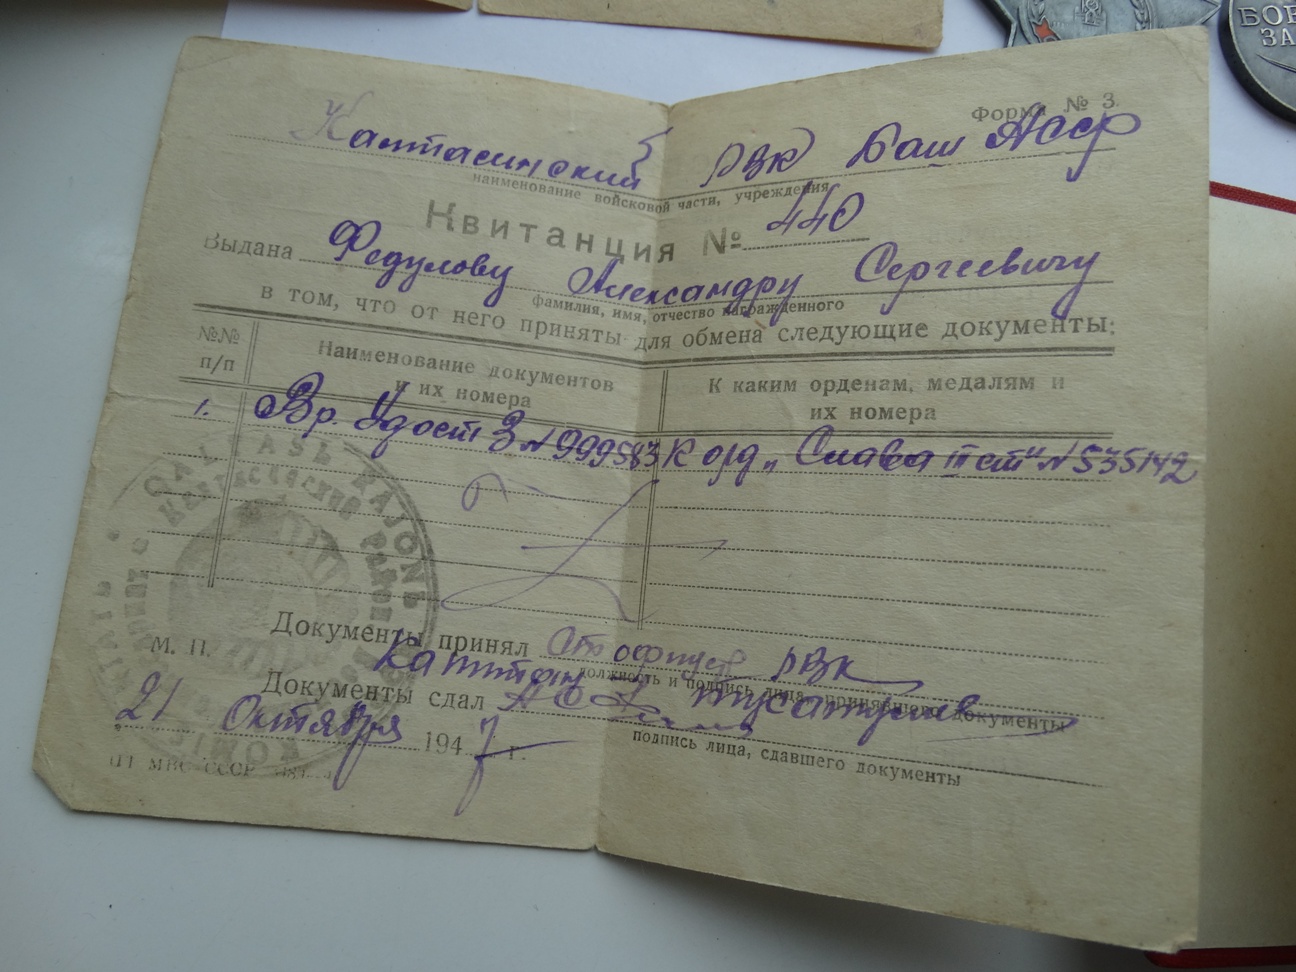 БОЕ
ЗА
Форма № 3.
Калтасинский РВК Баш Асср
наименование войсковой части, учреждения
Квитанция № 440
Выдана Федулову Александру Сергеевичу
фамилия, имя, отчество награжденного
в том, что от него приняты для обмена следующие документы:
№№ п/п
Наименование документов и их номера
К каким орденам, медалям и их номера
1. Вр. Удост З № 999583 К орд. „Слава III ст" № 535142
Документы принял РВК
М. П.
Капитан
должность и подпись лица, принявшего документы
Документы сдал
21 Октября 1947 г.
подпись лица, сдавшего документы